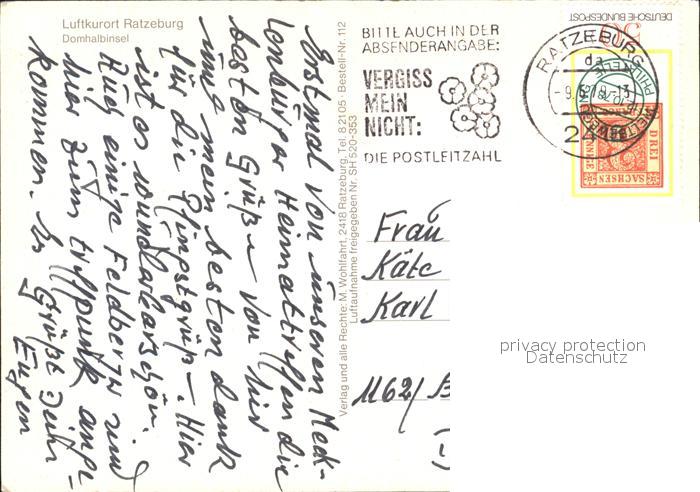 Luftkurort Ratzeburg
Domhalbinsel
Erstmal von unseren Meck-
lenburger Heimattreffen die
besten Grüße von hier
und mein besten dank
für die Pfingstgrüße. Hier
ist es wunderbarschön.
Auch einige Feldberger sind
hier zum treffpunkt ange-
kommen. Es grüßt Euch
Eugen
Verlag und alle Rechte: M. Wohlfahrt, 2418 Ratzeburg, Tel. 8 21 05 · Bestell-Nr. 112
Luftaufnahme freigegeben Nr. SH 520-353
BITTE AUCH IN DER
ABSENDERANGABE:
VERGISS
MEIN
NICHT:
DIE POSTLEITZAHL
RATZEBURG
da
24
DEUTSCHE BUNDESPOST
DREI
SACHSEN
Frau
Käte
Karl
1162/ B
privacy protection
Datenschutz